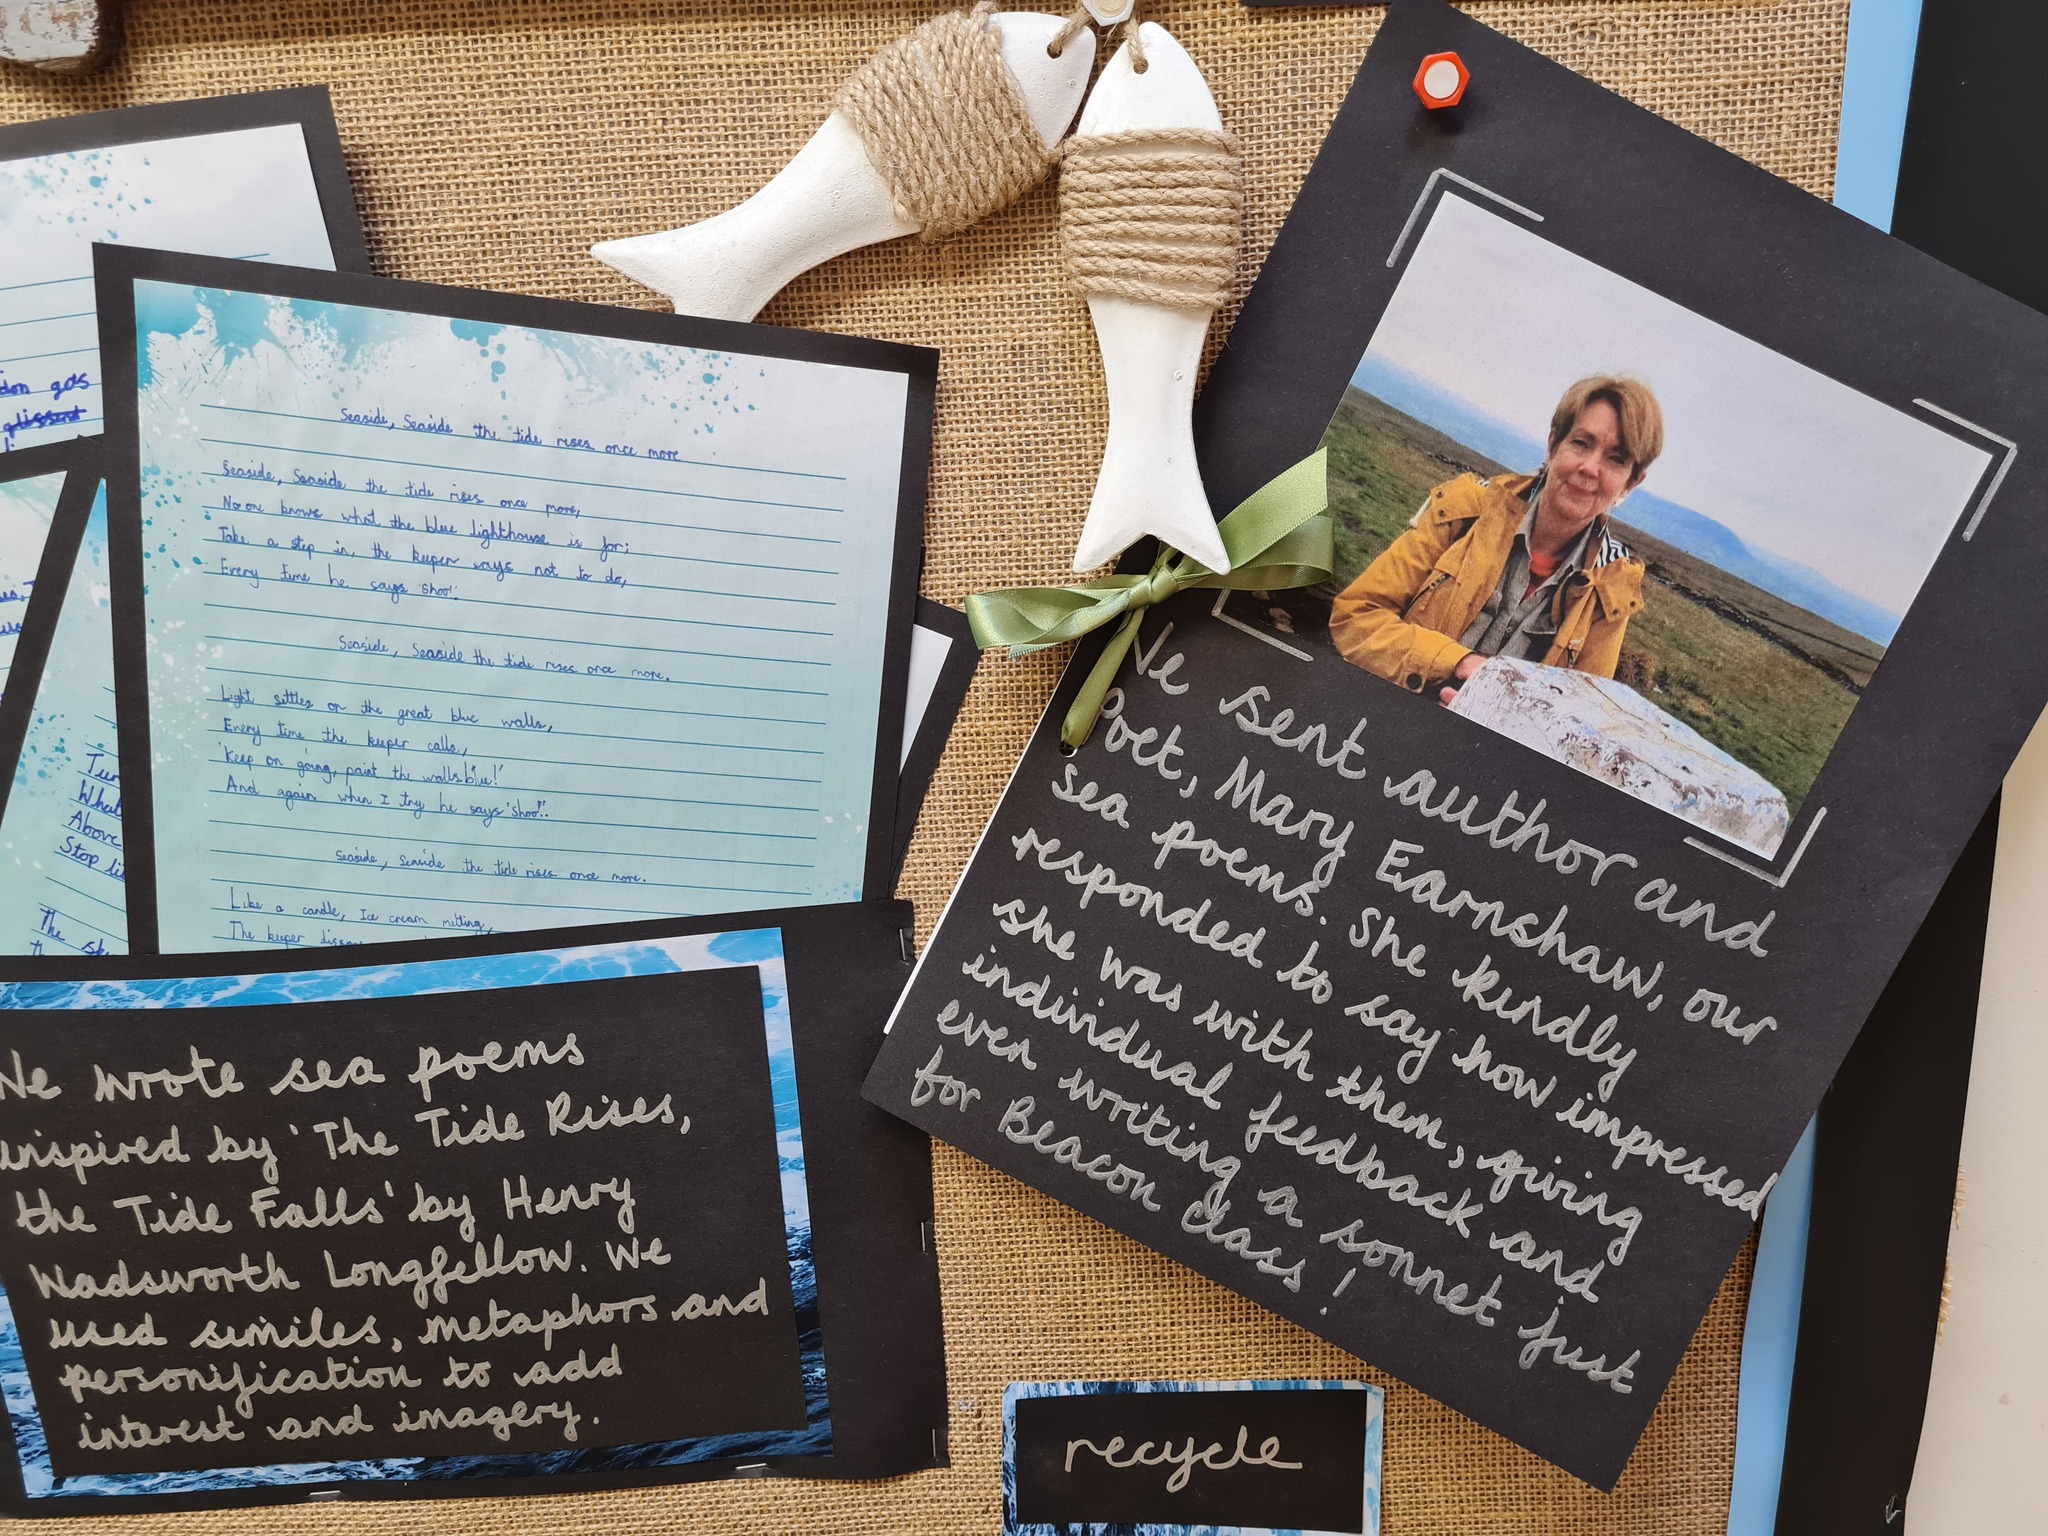 don gets
glissent
Seaside, Seaside the tide rises once more
Seaside, Seaside the tide rises once more,
No one knows what the blue lighthouse is for;
Take a step in, the keeper says not to do,
Every time he says 'shoo!'.
Seaside, Seaside the tide rises once more.
Light settles on the great blue walls,
Every time the keeper calls,
'Keep on going, paint the walls blue!'
And again when I try he says 'shoo!'.
Seaside, Seaside the tide rises once more.
Like a candle, Ice cream melting,
The keeper
Above
The
We wrote sea poems
inspired by 'The Tide Rises,
the Tide Falls' by Henry
Wadsworth Longfellow. We
used similes, metaphors and
personification to add
interest and imagery.
We sent author and
Poet, Mary Earnshaw, our
sea poems. She kindly
responded to say how impressed
she was with them, giving
individual feedback and
even writing a sonnet just
for Beacon class!
recycle